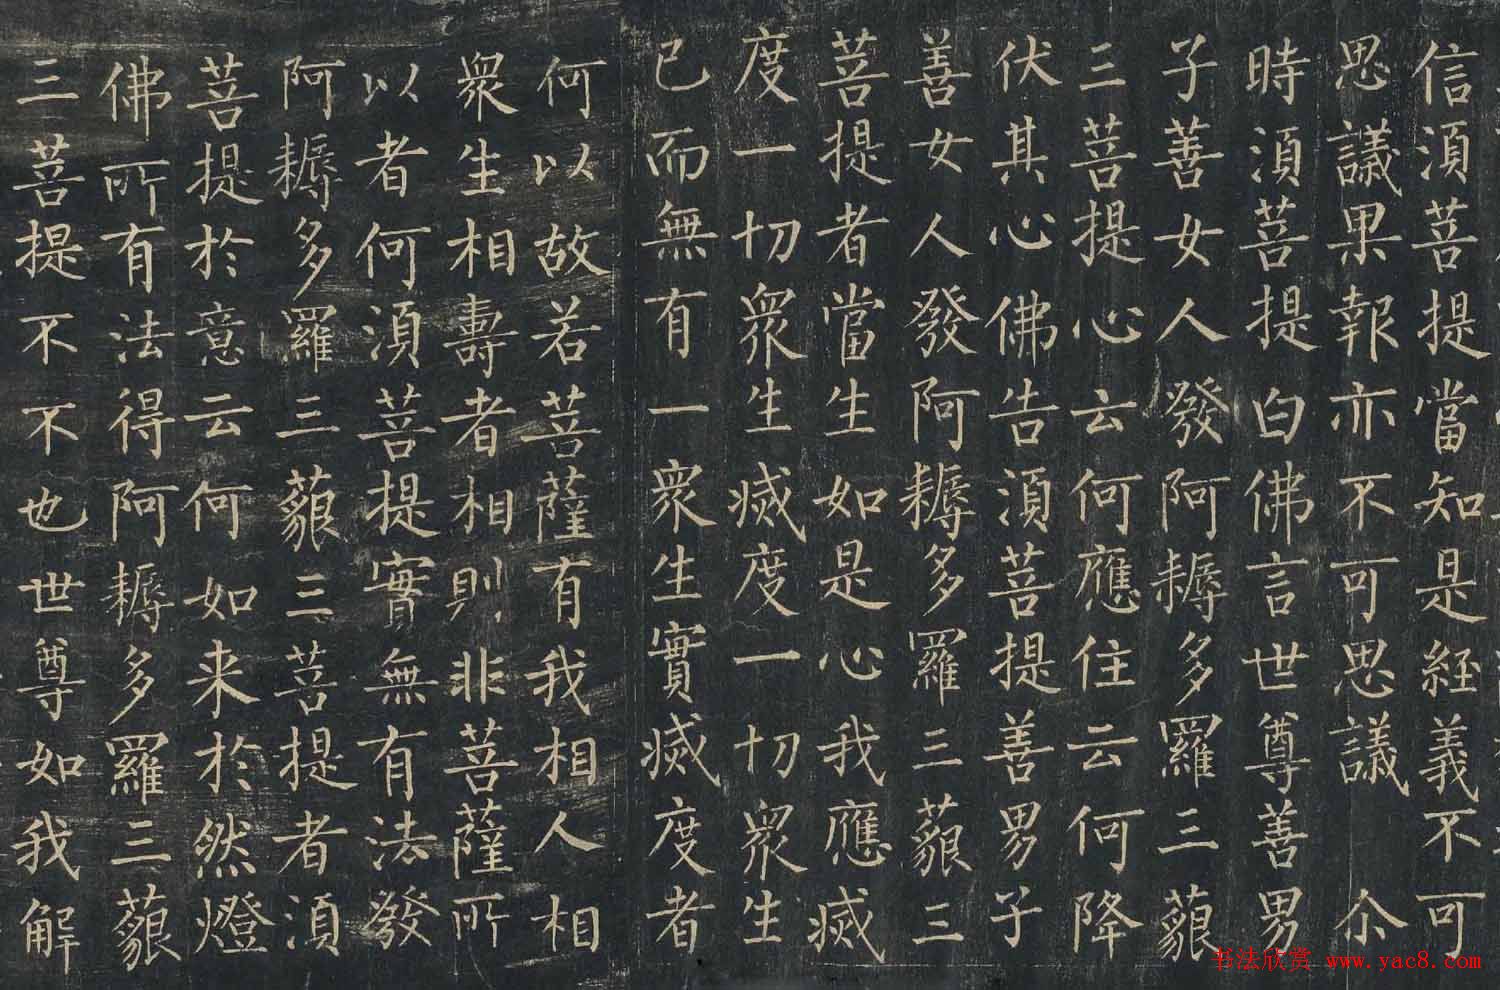 信須菩提當知是経義不可
思議果報亦不可思議 尒
時須菩提白佛言世尊善男
子善女人發阿耨多羅三藐
三菩提心云何應住云何降
伏其心佛告須菩提善男子
善女人發阿耨多羅三藐三
菩提者當生如是心我應滅
度一切衆生滅度一切衆生
已而無有一衆生實滅度者
何以故若菩薩有我相人相
衆生相壽者相則非菩薩所
以者何須菩提實無有法發
阿耨多羅三藐三菩提者須
菩提於意云何如来於然燈
佛所有法得阿耨多羅三藐
三菩提不不也世尊如我解
书法欣赏 www.yac8.com